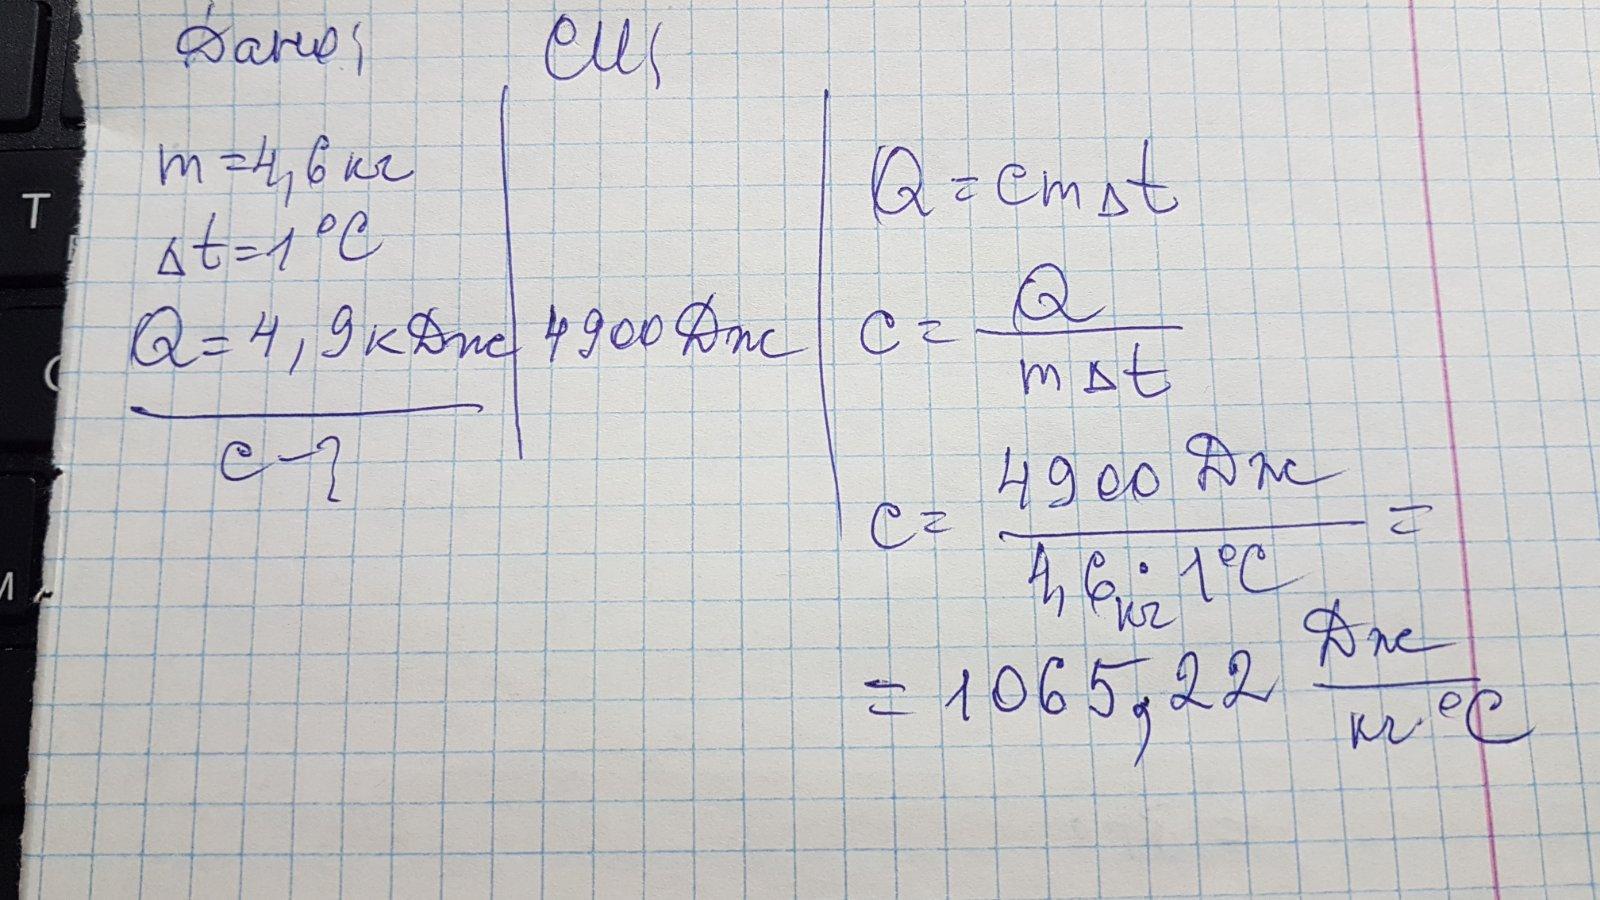 Дано: СИ:
m=4,6 кг
Δt=1°C
Q=4,9кДж
4900 Дж
c-?
Q=cmΔt
c= Q / mΔt
c= 4900 Дж / 4,6кг·1°C =
=1065,22 Дж / кг·°C
Т
И